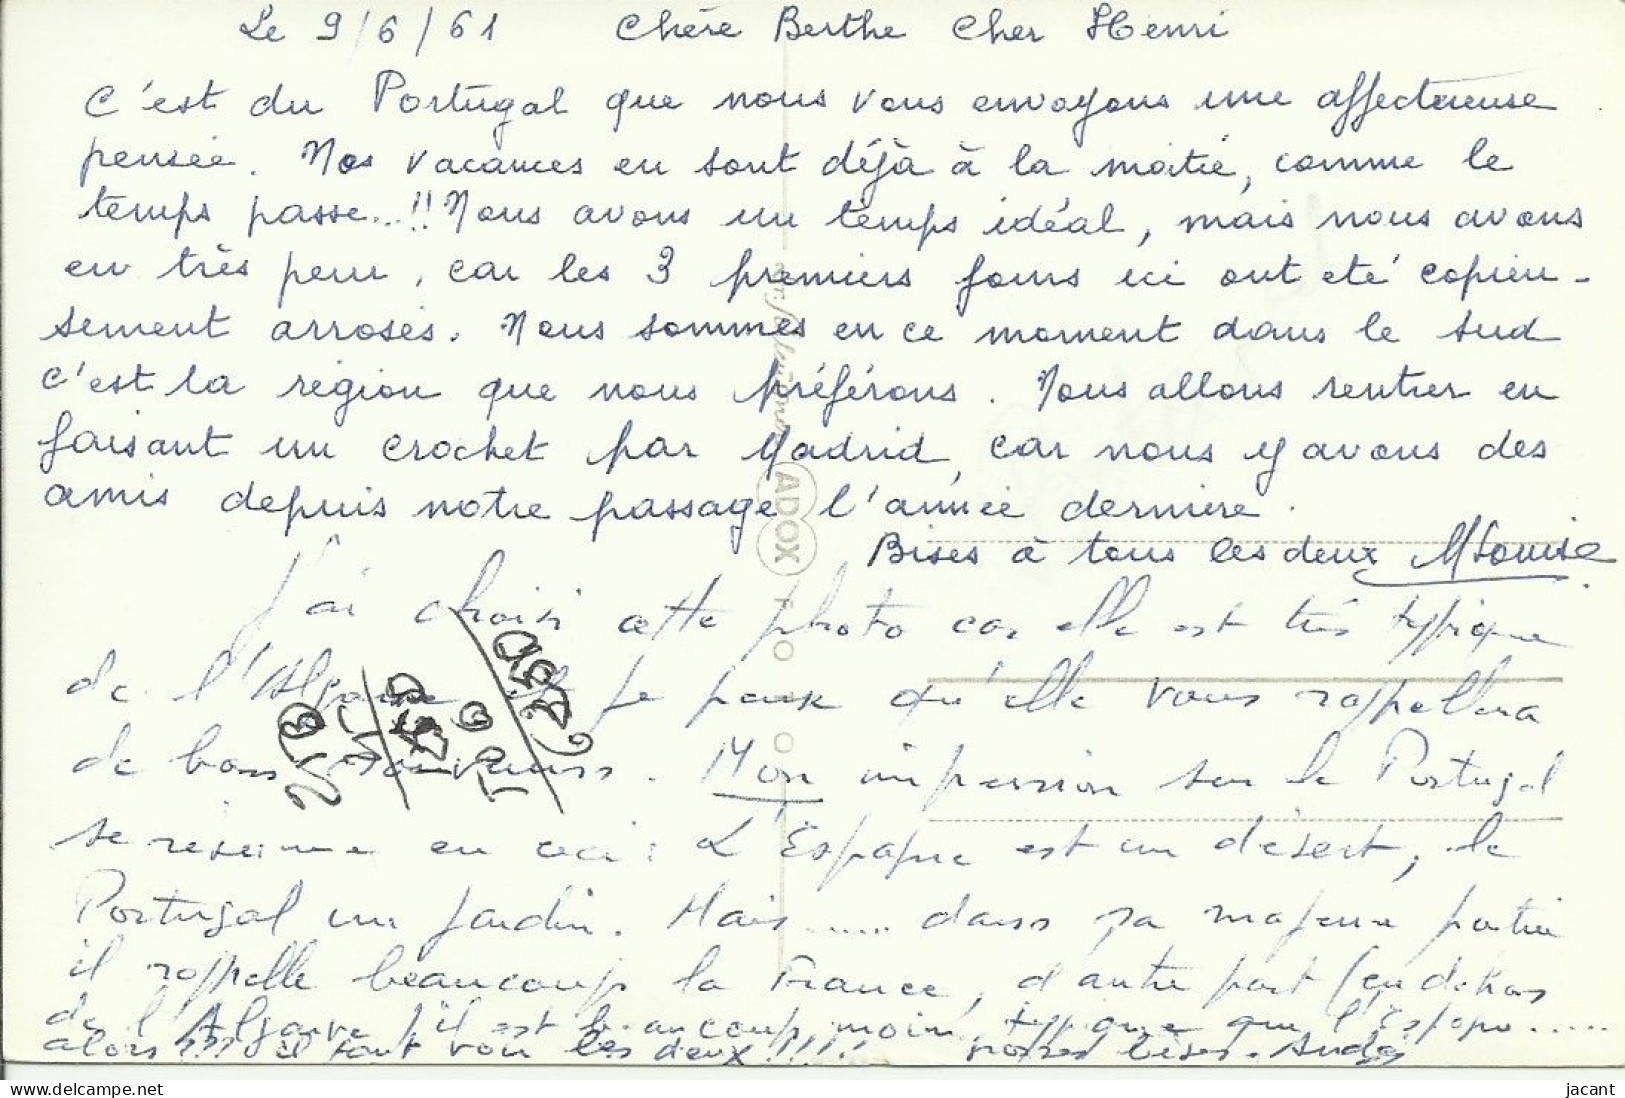 Le 9/6/61 Chère Berthe Cher Henri
C'est du Portugal que nous vous envoyons une affectueuse
pensée. Nos vacances en sont déjà à la moitié, comme le
temps passe...!! Nous avons un temps idéal, mais nous avons
eu très peur, car les 3 premiers jours ici ont été copieu-
sement arrosés. Nous sommes en ce moment dans le sud
c'est la région que nous préférons. Nous allons rentrer en
faisant un crochet par Madrid, car nous y avons des
amis depuis notre passage l'année dernière.
Bises à tous les deux MLouise
J'ai choisi cette photo car elle est très typique
de l'Algarve et je pense qu'elle vous rappellera
de bons souvenirs. Mon impression sur le Portugal
se résume en ceci: L'Espagne est un désert, le
Portugal un jardin. Mais...... dans sa majeure partie
il rappelle beaucoup la France, d'autre part (en dehors
de l'Algarve) il est beaucoup moins typique que l'Espagne.....
alors !!! il faut voir les deux !!!!! nos bises.
ADOX
jacant